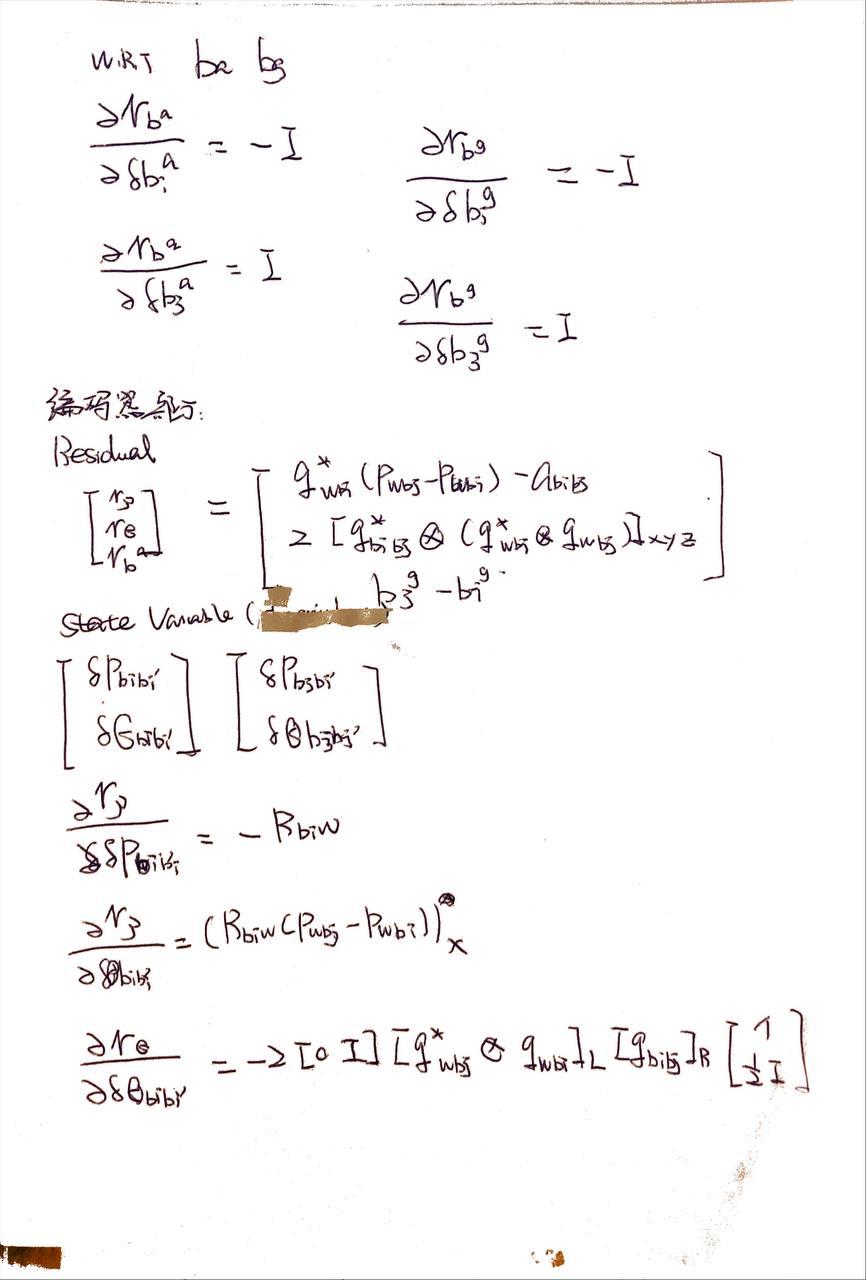 W.R.T ba bg
∂r_{b^a} / ∂δb_i^a = -I
∂r_{b^g} / ∂δb_i^g = -I
∂r_{b^a} / ∂δb_3^a = I
∂r_{b^g} / ∂δb_3^g = I
编码器部分:
Residual
[r_p; r_θ; r_b^a] = [q*_{wbi} (P_{wbj} - P_{wbi}) - a_{bibj}; 2 [q*_{bibj} ⊗ (q*_{wbi} ⊗ q_{wbj})]_{xyz}; b_3^g - b_i^g]
State Variable (
[δP_{bibi'}; δθ_{bibi'}] [δP_{bjbj'}; δθ_{bjbj'}]
∂r_p / ∂δP_{bibi'} = - R_{biw}
∂r_p / ∂δθ_{bibi'} = (R_{biw} (P_{wbj} - P_{wbi}))_×
∂r_θ / ∂δθ_{bibi'} = -2 [0 I] [q*_{wbj} ⊗ q_{wbi}]_L [q_{bibj}]_R [1; ½ I]